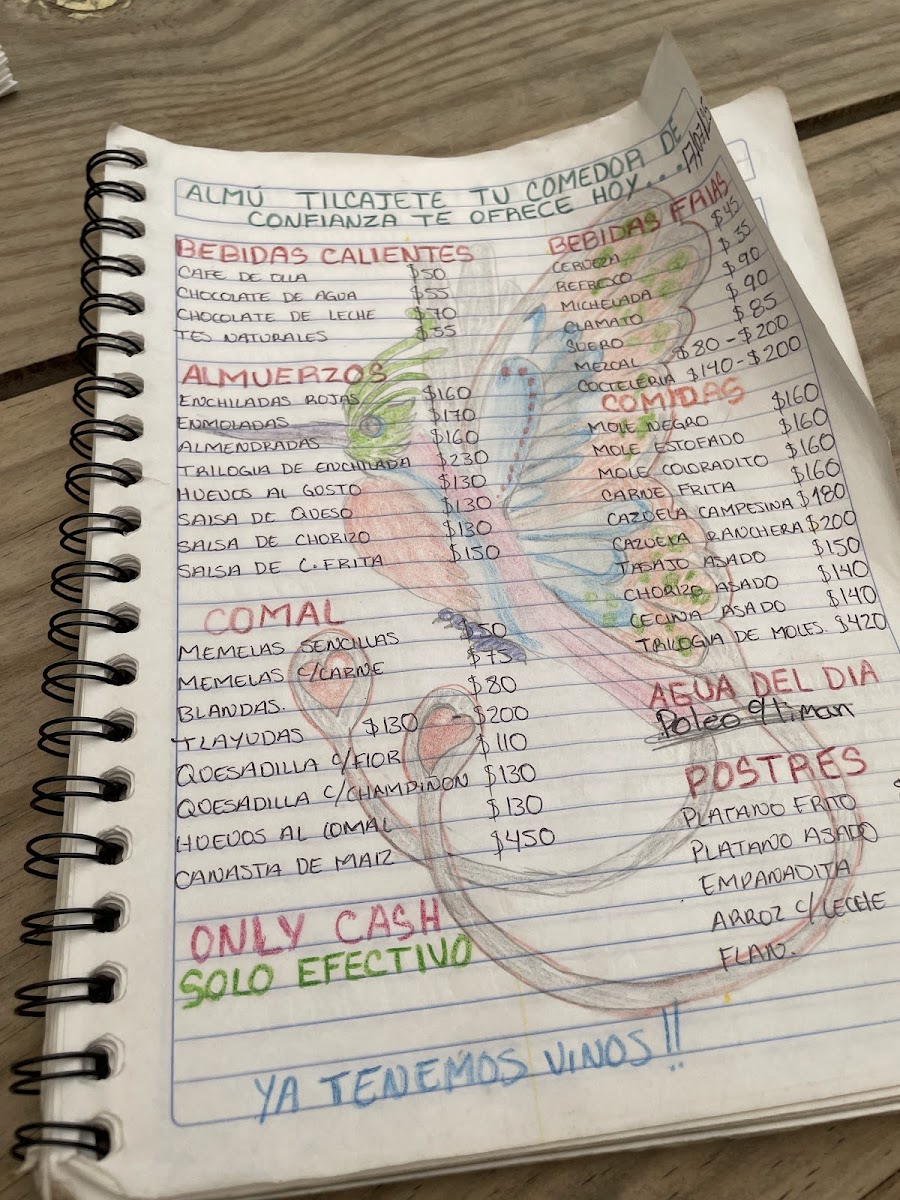 ALMÚ TILCAJETE TU COMEDOR DE
CONFIANZA TE OFRECE HOY...
BEBIDAS CALIENTES
CAFE DE OLLA $50
CHOCOLATE DE AGUA $55
CHOCOLATE DE LECHE $70
TES NATURALES $55
ALMUERZOS
ENCHILADAS ROJAS $160
ENMOLADAS $170
ALMENDRADAS $160
TRILOGIA DE ENCHILADA $230
HUEVOS AL GOSTO $130
SALSA DE QUESO $130
SALSA DE CHORIZO $130
SALSA DE C. FRITA $150
COMAL
MEMELAS SENCILLAS $50
MEMELAS C/CARNE $75
BLANDAS. $80
TLAYUDAS $130 - $200
QUESADILLA C/FLOR $110
QUESADILLA C/CHAMPIÑON $130
HUEVOS AL COMAL $130
CANASTA DE MAIZ $450
ONLY CASH
SOLO EFECTIVO
BEBIDAS FRIAS
CERVEZA $45
REFRESCO $35
MICHELADA $90
CLAMATO $90
SUERO $85
MEZCAL $80 - $200
COCTELERIA $140 - $200
COMIDAS
MOLE NEGRO $160
MOLE ESTOFADO $160
MOLE COLORADITO $160
CARNE FRITA $160
CAZUELA CAMPESINA $180
CAZUELA RANCHERA $200
TASAJO ASADO $150
CHORIZO ASADO $140
CECINA ASADO $140
TRILOGIA DE MOLES. $420
AGUA DEL DIA
Poleo y limon
POSTRES
PLATANO FRITO
PLATANO ASADO
EMPANADITA
ARROZ C/LECHE
FLAN.
YA TENEMOS VINOS!!